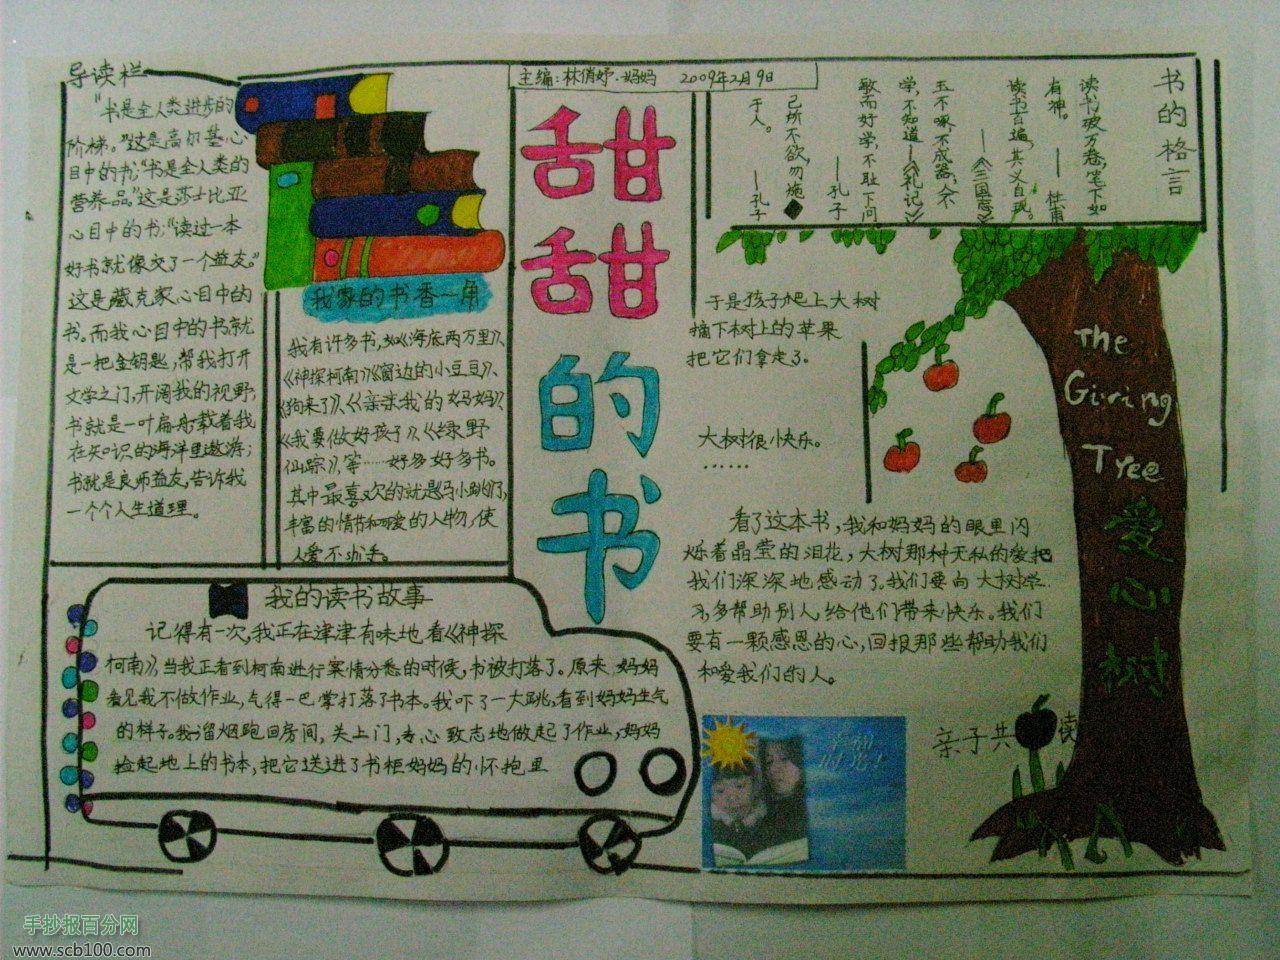 导读栏
“书是全人类进步的
阶梯。”这是高尔基心
目中的书;“书是全人类的
营养品。”这是莎士比亚
心目中的书;“读过一本
好书就像交了一个益友。”
这是臧克家心目中的
书。而我心目中的书就
是一把金钥匙,帮我打开
文学之门,开阔我的视野;
书就是一叶扁舟,载着我
在知识的海洋里遨游;
书就是良师益友,告诉我
一个个人生道理。
我家的书香一角
我有许多书,如《海底两万里》、
《神探柯南》《窗边的小豆豆》、
《狗来了》、《亲亲我的妈妈》、
《我要做好孩子》、《绿野
仙踪》,等……好多好多书。
其中最喜欢的就是《马小跳》们,
丰富的情节和可爱的人物,使
人爱不释手。
主编:林俏妤·妈妈 2009年2月9日
甜甜的书
书的格言
读书破万卷,笔下如
有神。 ——杜甫
读书百遍,其义自现。
——《三国志》
玉不啄,不成器;人不
学,不知道——《礼记》
敏而好学,不耻下问
——孔子
己所不欲,勿施
于人。 ——孔子
于是孩子爬上大树
摘下树上的苹果
把它们拿走了。
大树很快乐。
……
The
Giving
Tree
爱心树
看了这本书,我和妈妈的眼里闪
烁着晶莹的泪花,大树那种无私的爱把
我们深深地感动了。我们要向大树学
习,多帮助别人,给他们带来快乐。我们
要有一颗感恩的心,回报那些帮助我们
和爱我们的人。
亲子共读
我的读书故事
记得有一次,我正在津津有味地看《神探
柯南》,当我正看到柯南进行案情分悉的时候,书被打落了。原来妈妈
看见我不做作业,气得一巴掌打落了书本。我吓了一大跳,看到妈妈生气
的样子。我一溜烟跑回房间,关上门,专心致志地做起了作业,妈妈
捡起地上的书本,把它送进了书柜妈妈的怀抱里
手抄报百分网
www.scb100.com